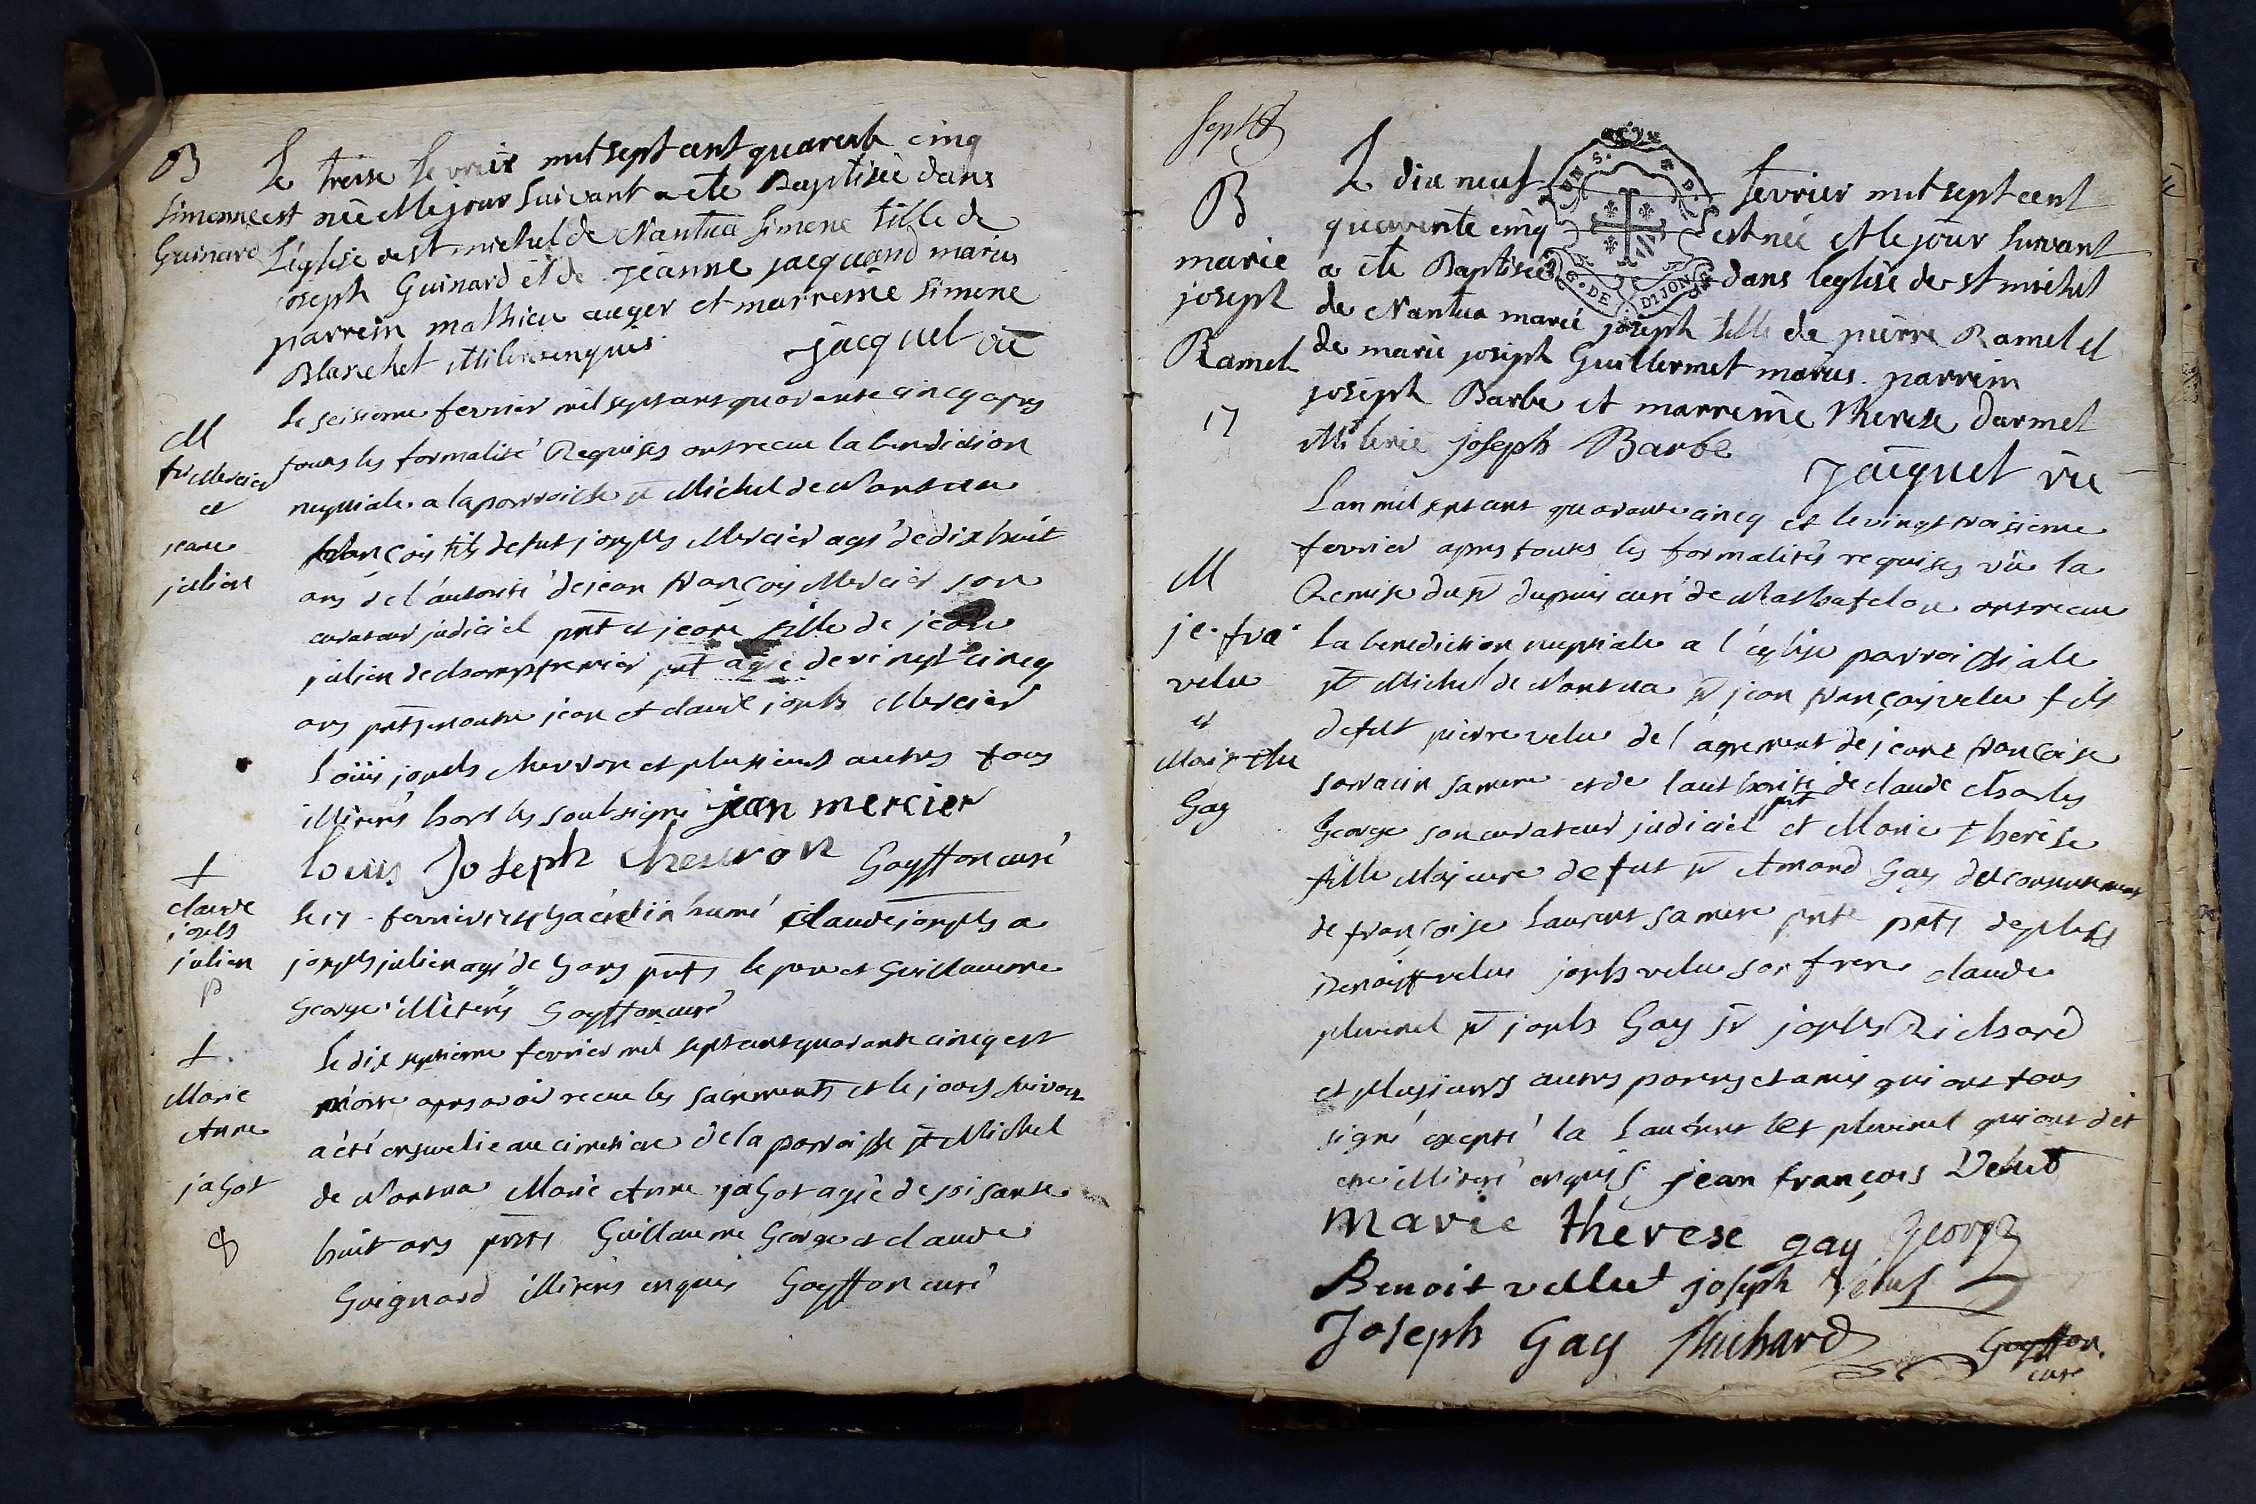 B
Simonne
Guinard
Le treise fevrier mil sept cent quarente cinq
est née et le jour suivant a ete Baptisée dans
l'église de st michel de Nantua Simone fille de
joseph Guinard et de jeanne jacquand mariés
parrein mathieu auger et marreine Simone
Blanchet illiterés enquis
jacquet vic
M
fr Mercier
et
jeane
julien
Le seisieme fevrier mil sept cent quarante cincq apres
toutes les formalité Requises ont receu la benediction
nuptiale a la parroisse st Michel de Nantua
françois fils de fut joseph Mercier agé de dix huit
ans de l'autorité de jean françois Mercier son
curateur judiciel pnt et jeane fille de jean
julien de champfremier pnt agée de vingt cincq
ans pnts
jean et claude joseph Mercier
Loüis joseph chevron et plusieurs autres tous
illiterés hors les soubsigné jean mercier
louis Joseph Cheuron Goyffon curé
†
claude
joseph
julien
p
Le 17 fevrier 1745 a été inhumé claude joseph a
joseph julien agé de 5 ans pnts le pere et Guillaume
George illiterés Goyffon curé
†.
Marie
Anne
jagot
8
Le dix septieme fevrier mil sept cent quarante cincq est
morte apres avoir receu les sacrements et le jour suivant
a été ensevelie au cimetiere de la parroisse st Michel
de Nantua Marie Anne jagot agée de soisante
huit ans pnts Guillaume George et claude
Goignard illiterés enquis Goyffon curé
sept
B
marie
joseph
Ramel
17
G. DE DIJON
L dix neuf fevrier mil sept cent
quarente cinq est née et le jour suivant
a ete Baptisée dans l'eglise de st michel
de Nantua marie joseph fille de pierre Ramel et
de marie joseph Guillermet mariés. parrein
joseph Barbe et marreine therese darmet
illiterée joseph Barbe
Jacquet vic
M
je. fra.
velu
et
Marie the
Gay
L'an mil sept cent quarante cincq et le vingt troisieme
fevrier apres toutes les formalités requises vû la
Remise du sr dupuis curé de Mathafelon ont receu
la benediction nuptiale a l'eglise parroissiale
st Michel de Nantua sr jean françois velu fils
de fut pierre velu de l'agrement de jeane françoise
sarracin sa mere et de l'authorité de claude charles
George son curateur judiciel pnt et Marie Therese
fille Majeure de fut sr Amand Gay du consentement
de françoise Laurent sa mere pnte pnts de plus
Benoist velu joseph velu son frere claude
pluvinel sr joseph Gay sr joseph Richard
et plusieurs autres parens et amis qui ont tous
signé excepté la Laurent et pluvinel qui ont dit
etre illiteré enquis jean françois Velut
marie therese gay George
Benoit vellut joseph vélut
Joseph Gay Richard
Goyffon
curé